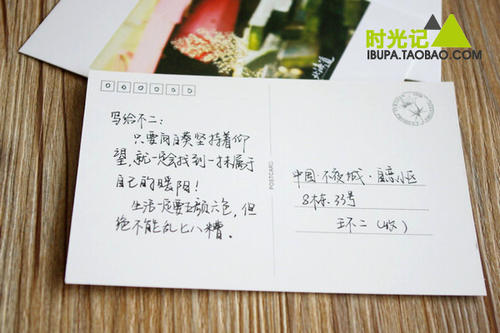 时光记
IBUPA.TAOBAO.COM
北海道
写给不二：
只要向日葵坚持着仰
望，就一定会找到一抹属于
自己的暖阳！
生活一定要五颜六色，但
绝不能乱七八糟。
POSTCARD
中国·不夜城·自言小区
8栋·33号
王不二（收）